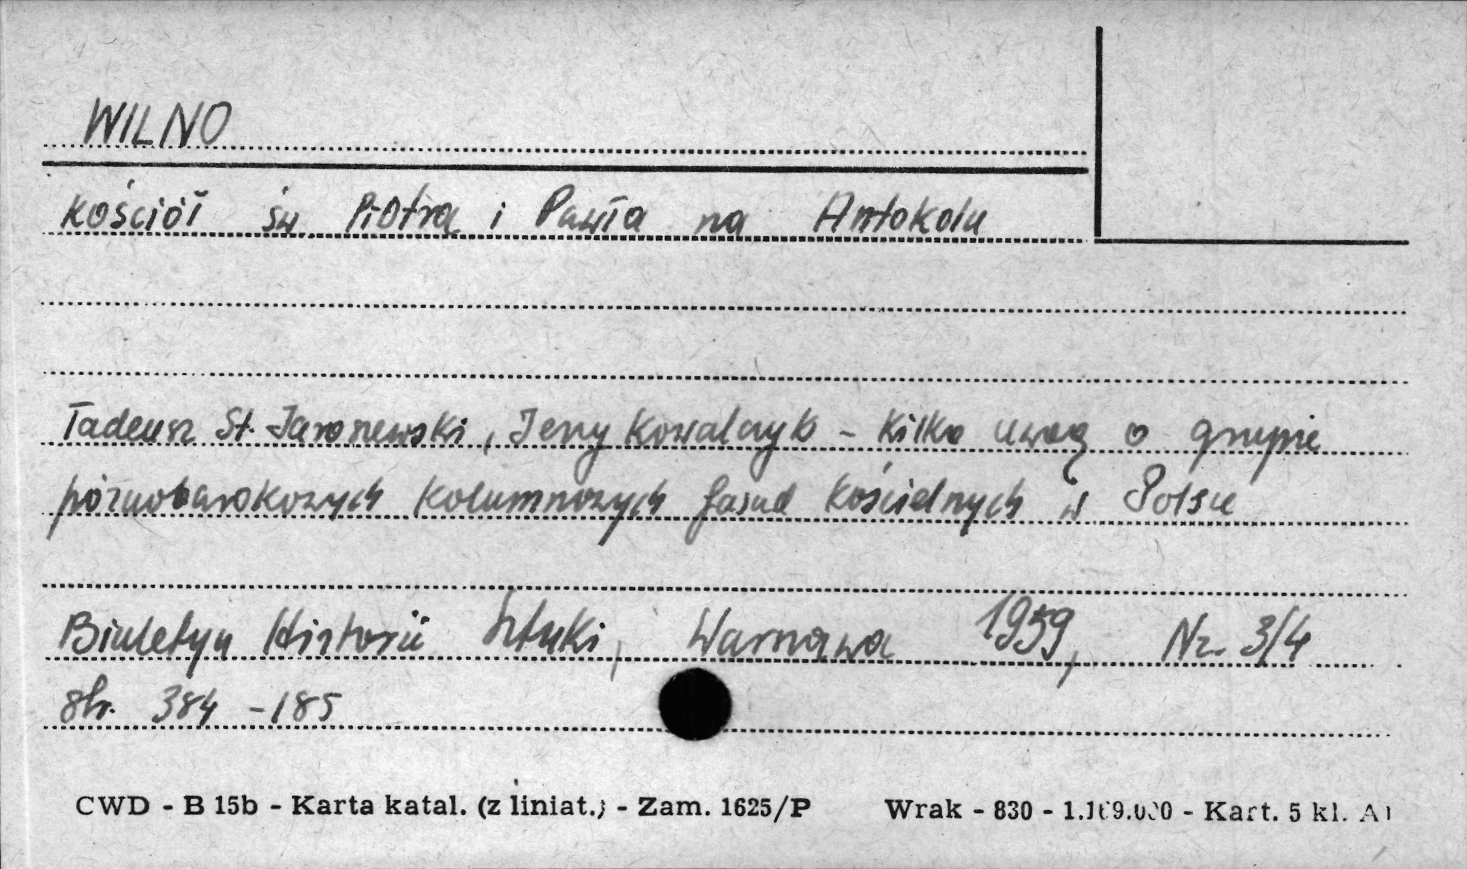 WILNO
Kościół św. Piotra i Pawła na Antokolu
Tadeusz St. Jaroszewski, Jerzy Kowalczyk - Kilka uwag o grupie
późnobarokowych kolumnowych fasad kościelnych w Polsce
Biuletyn Historii Sztuki, Warszawa 1959, Nr. 3/4
str. 384 - 185
CWD - B 15b - Karta katal. (z liniat.) - Zam. 1625/P Wrak - 830 - 1.109.000 - Kart. 5 kl. A1